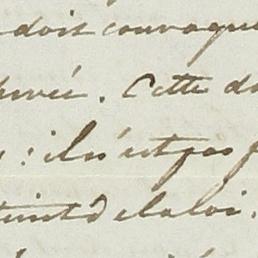 doit convoque
. Cette d
: il n'est pas f
teint de la loi.